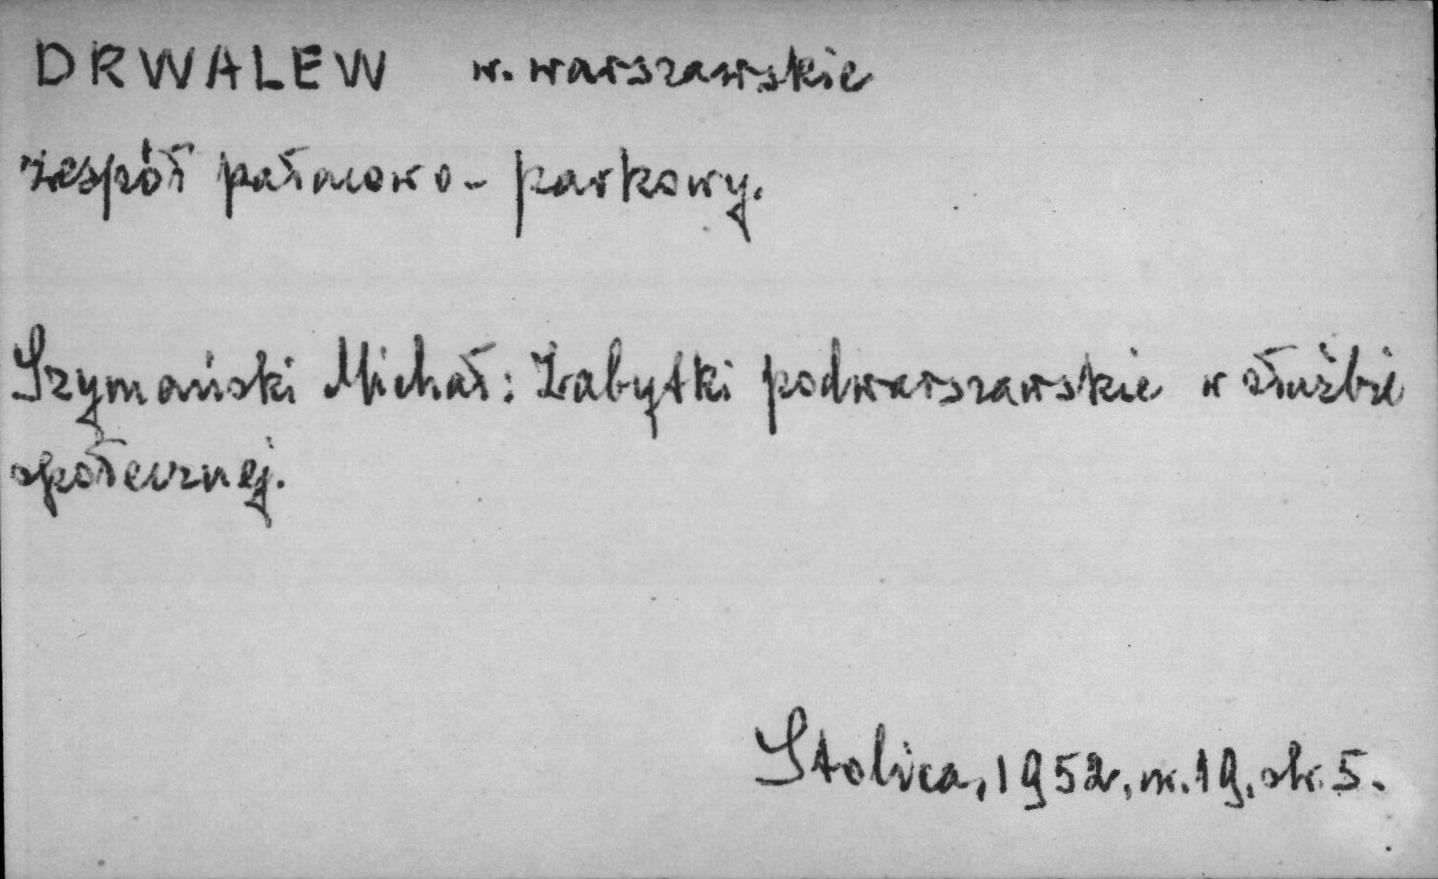 DRWALEW w. warszawskie
zespół pałacowo-parkowy.
Szymański Michał: Zabytki podwarszawskie w służbie
społecznej.
Stolica, 1952, nr. 19, str. 5.